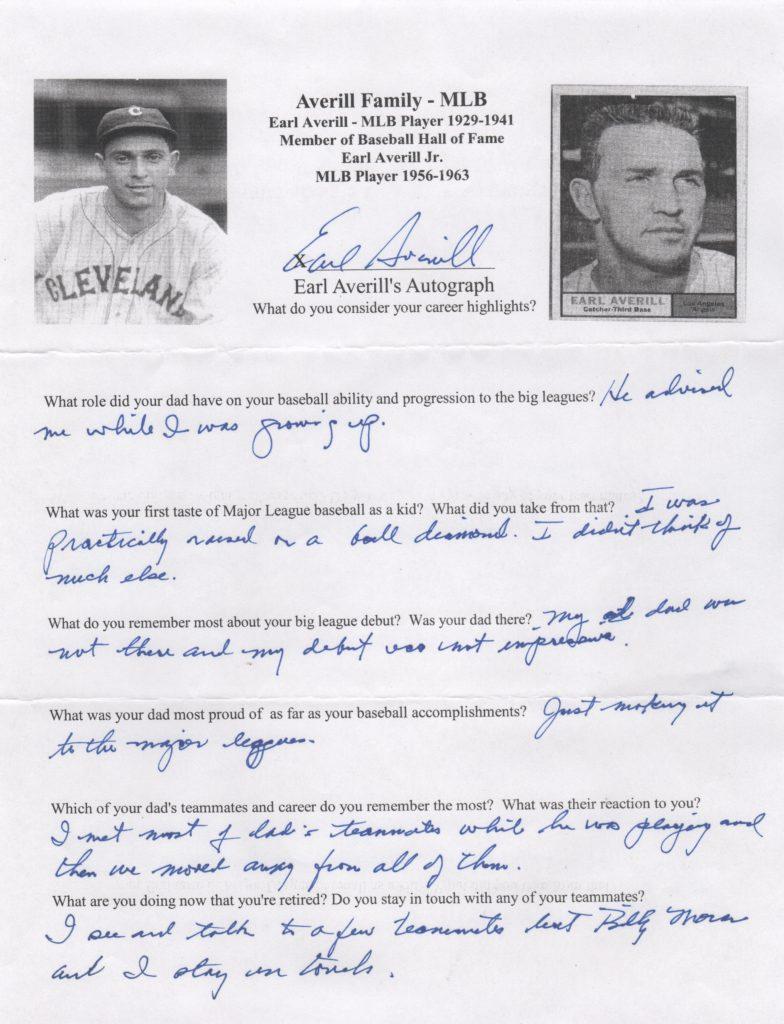 Averill Family - MLB
Earl Averill - MLB Player 1929-1941
Member of Baseball Hall of Fame
Earl Averill Jr.
MLB Player 1956-1963
C
CLEVELAND
X Earl Averill
Earl Averill's Autograph
What do you consider your career highlights?
EARL AVERILL
Catcher-Third Base
Los Angeles
Angels
What role did your dad have on your baseball ability and progression to the big leagues? He advised
me while I was growing up.
What was your first taste of Major League baseball as a kid? What did you take from that? I was
practically raised on a ball diamond. I didn't think of
much else.
What do you remember most about your big league debut? Was your dad there? My dad was
not there and my debut was not impressive.
What was your dad most proud of as far as your baseball accomplishments? Just making it
to the major leagues.
Which of your dad's teammates and career do you remember the most? What was their reaction to you?
I met most of dad's teammates while he was playing and
then we moved away from all of them.
What are you doing now that you're retired? Do you stay in touch with any of your teammates?
I see and talk to a few teammates but Billy Moran
and I stay in touch.